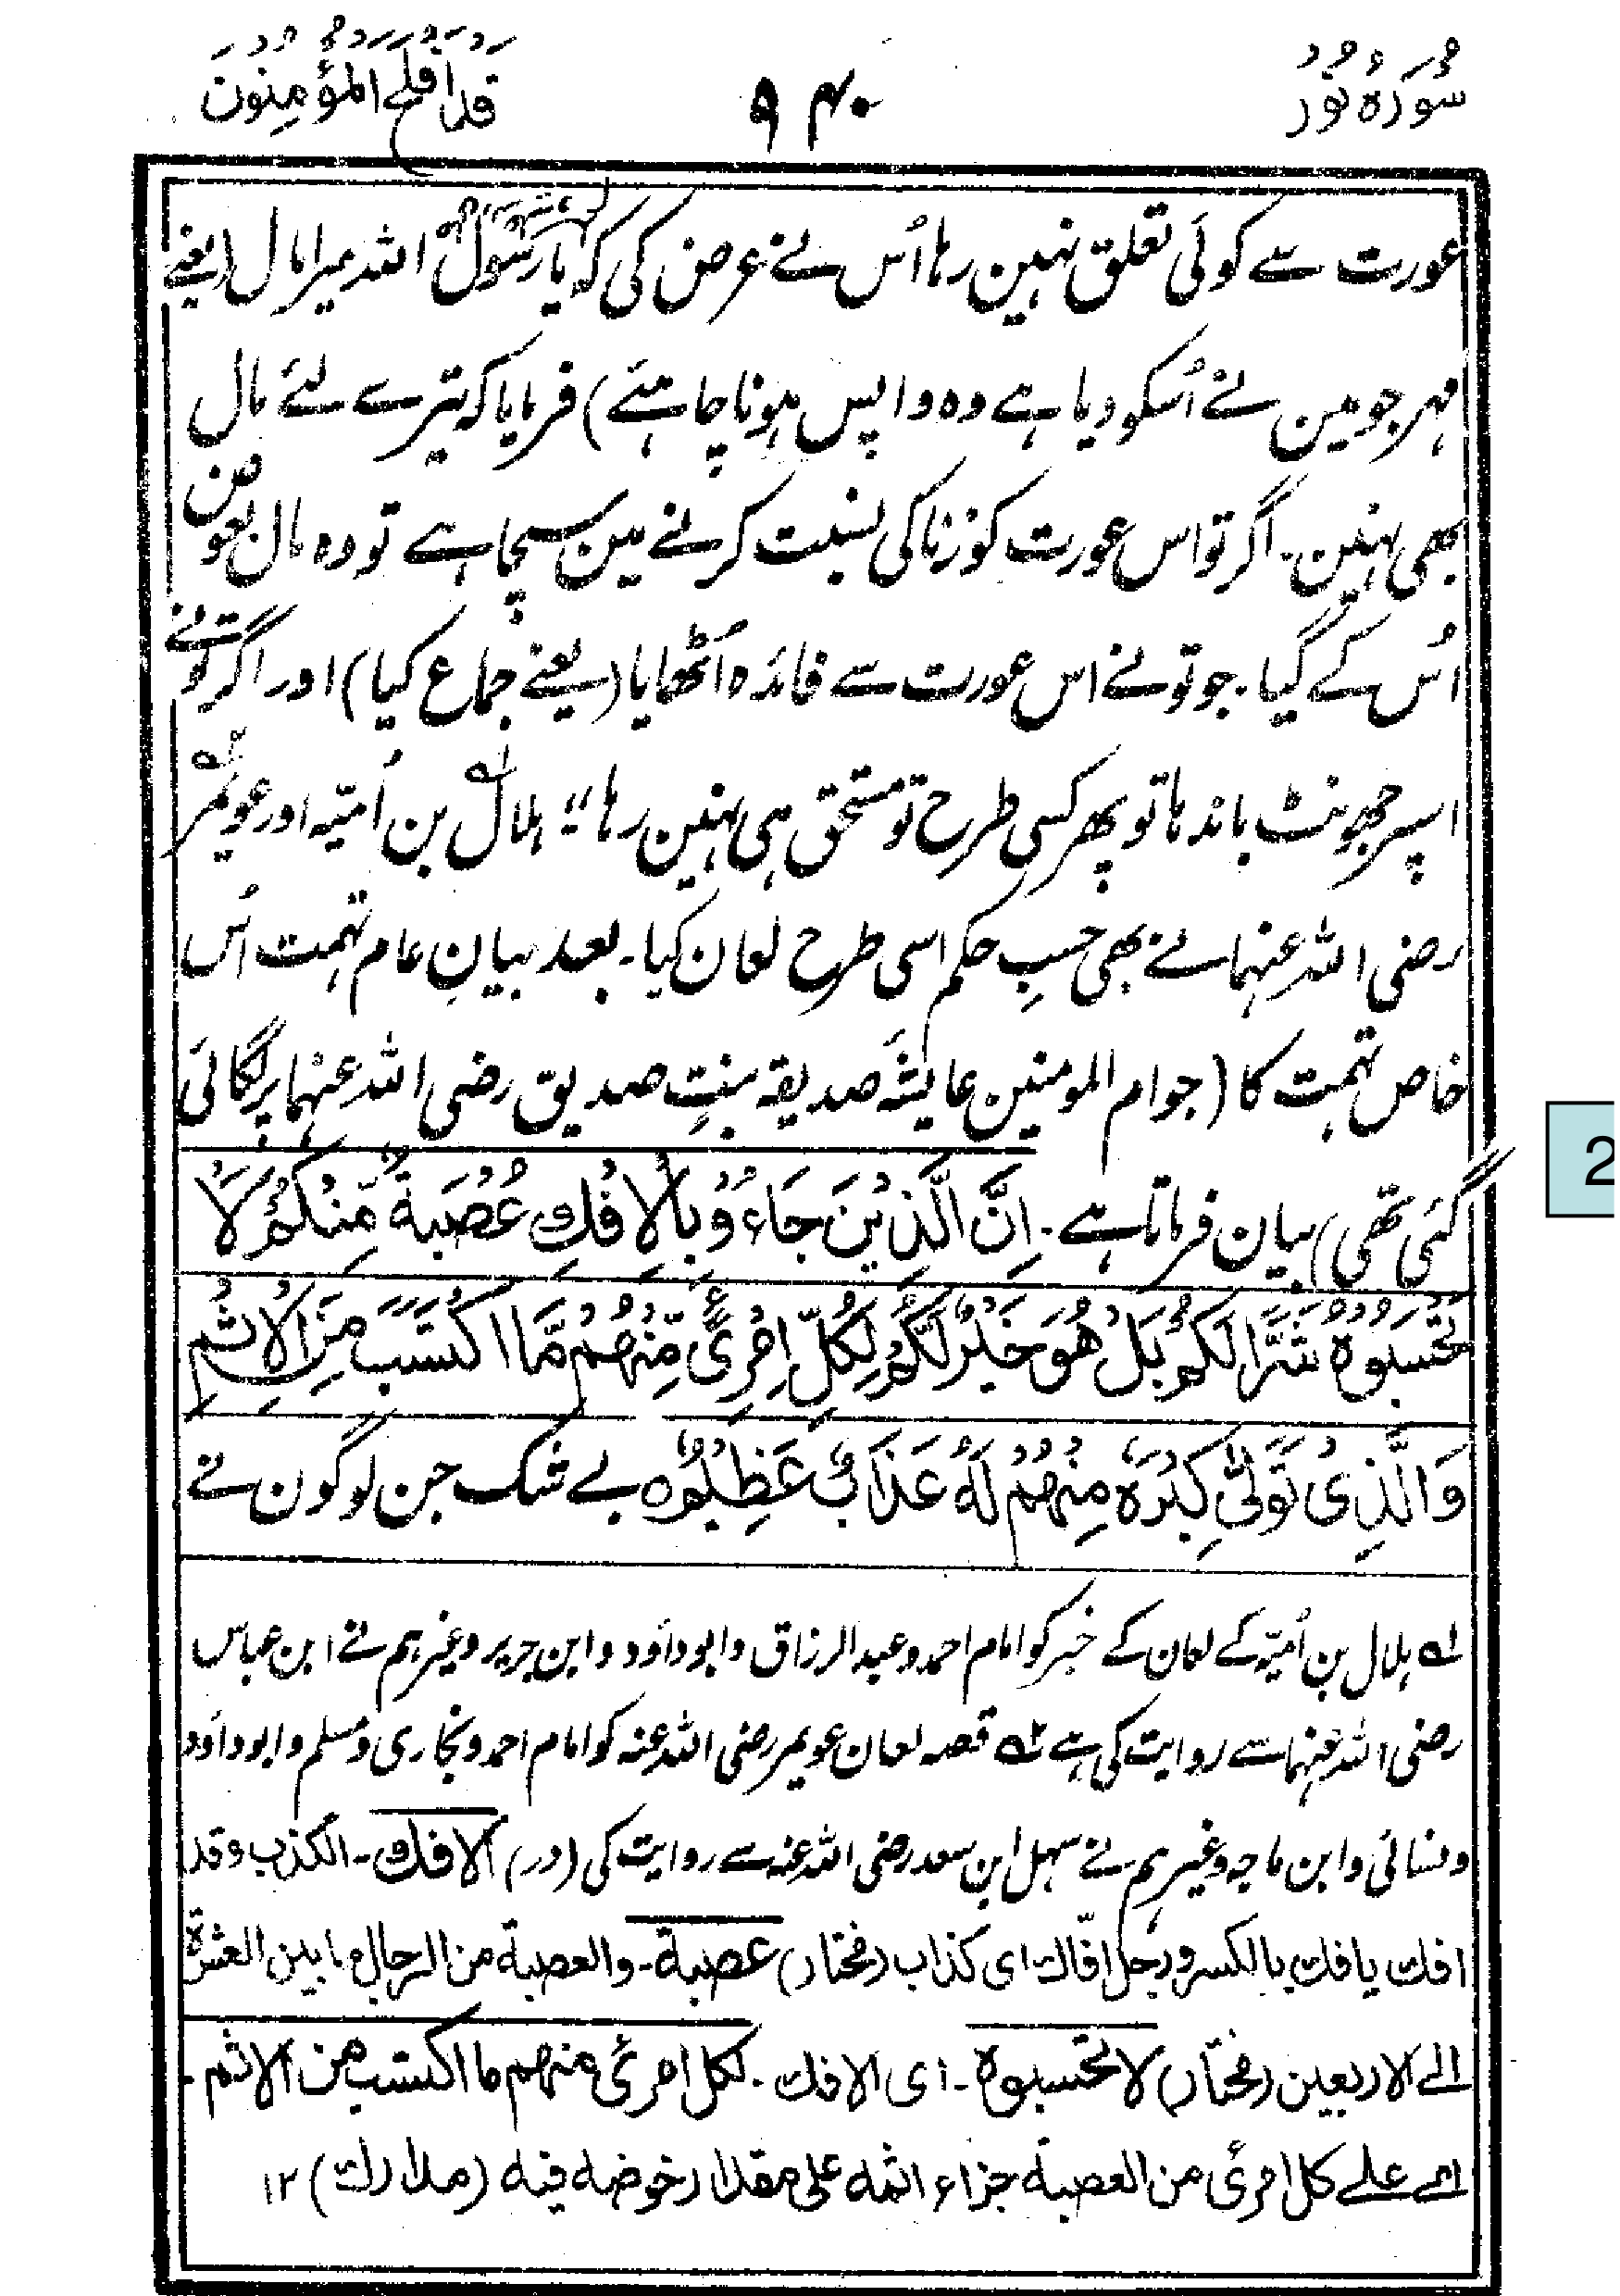 سُوْرَۃ نُوْر
۹۴۰
قَدْ اَفْلَحَ الْمُؤْمِنُوْنَ
عورت سے کوئی تعلق نہین رہا اُس نے عرض کی کہ یا رَسُوْل اللہ میرا مال (یعنے
مہر جو مین نے اُسکو دیا ہے وہ واپس ہونا چاہئے) فرمایا کہ تیرے لئے مال
بھی نہین۔ اگر تو اس عورت کو زنا کی نسبت کرنے مین سچا ہے تو وہ مال بعوض
اُس کے گیا۔ جو تو نے اس عورت سے فائدہ اُٹھایا (یعنے جماع کیا) اور اگر تو نے
اسپر جھونٹ باندہا تو پھر کسی طرح تو مستحق ہی نہین رہا" ہلال بن اُمیّہ اور عویمر
رضی اللہ عنہما نے بھی حسبِ حکم اسی طرح لعان کیا۔ بعد بیانِ عام تہمت اُس
خاص تہمت کا (جو ام المومنین عایشہ صدیقہ بنتِ صدیق رضی اللہ عنہما پر لگائی
گئی تھی) بیان فرماتا ہے۔ اِنَّ الَّذِیْنَ جَاءُوْ بِالْاِفْکِ عُصْبَةٌ مِّنْکُمْ لَا
تَحْسَبُوْهُ شَرًّا لَّکُمْ بَلْ هُوَ خَیْرٌ لَّکُمْ لِکُلِّ امْرِئٍ مِّنْهُمْ مَّا اکْتَسَبَ مِنَ الْاِثْمِ
وَالَّذِیْ تَوَلّٰی کِبْرَهٗ مِنْهُمْ لَهٗ عَذَابٌ عَظِیْمٌ ہ بے شک جن لوگون نے
۱ ہلال بن اُمیّہ کے لعان کے خبر کو امام احمد و عبد الرزاق و ابو داود و ابن جریر وغیرہم نے ابن عباس
رضی اللہ عنہما سے روایت کی ہے ۲ قصہ لعان عویمر رضی اللہ عنہ کو امام احمد و بخاری و مسلم و ابو داود
و نسائی و ابن ماجہ وغیرہم نے سہل ابن سعد رضی اللہ عنہ سے روایت کی (در) الافک۔ الکذب وقد
افک یافک بالکسر و رجل افّاک ای کذاب (مختار) عصبة۔ والعصبة من الرجال ما بین العشرة
الے الاربعین (مختار) لا تحسبوه۔ ای الافک۔ لکل امرئ منهم ما اکتسب من الاثم۔
اے علے کل امرئ من العصبة جزاء اثمه علی مقدار خوضه فیه (مدارک) ۱۲
2